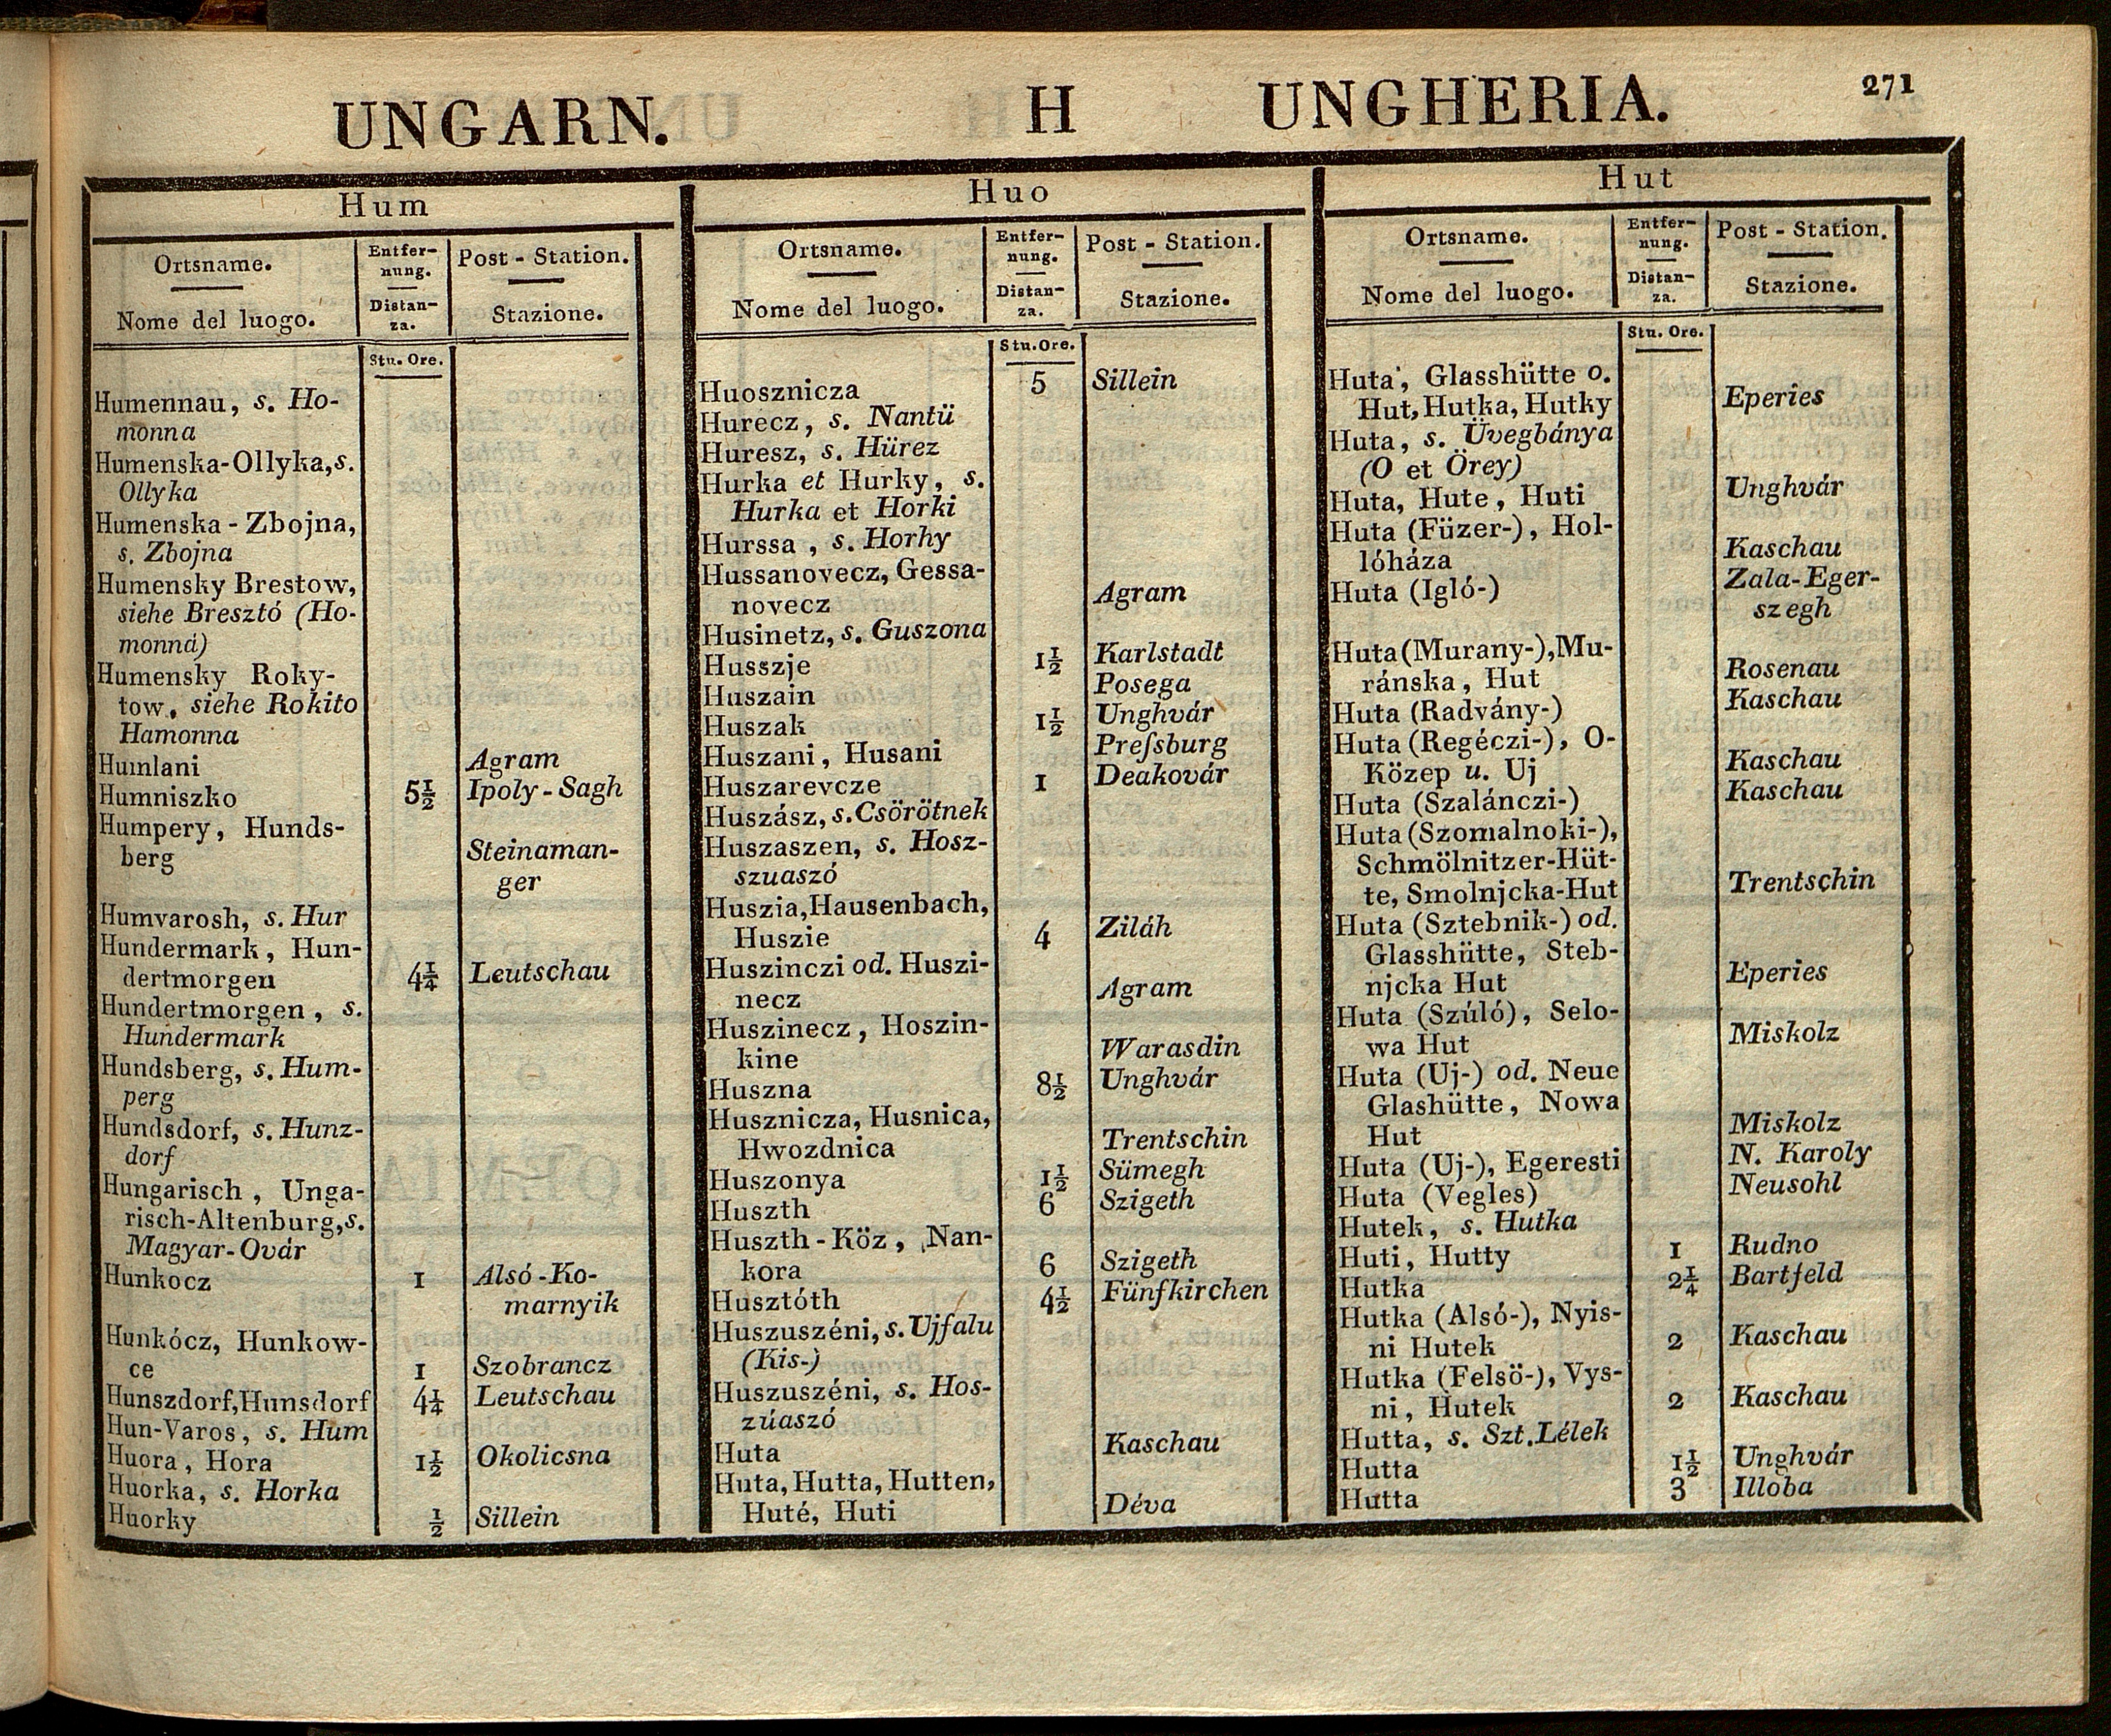 UNGARN. H UNGHERIA. 271
Hum
Ortsname. Entfer- Post - Station.
nung.
Nome del luogo. Distan- Stazione.
za.
Stu. Ore.
Humennau, s. Ho-
monna
Humenska-Ollyka, s.
Ollyka
Humenska - Zbojna,
s. Zbojna
Humensky Brestow,
siehe Bresztó (Ho-
monna)
Humensky Roky-
tow, siehe Rokito
Hamonna
Humlani Agram
Humniszko 5½ Ipoly - Sagh
Humpery, Hunds-
berg Steinaman-
ger
Humvarosh, s. Hur
Hundermark, Hun-
dertmorgen 4¼ Leutschau
Hundertmorgen, s.
Hundermark
Hundsberg, s. Hum-
perg
Hundsdorf, s. Hunz-
dorf
Hungarisch, Unga-
risch-Altenburg, s.
Magyar-Ovár
Hunkocz 1 Alsó-Ko-
marnyik
Hunkócz, Hunkow-
ce 1 Szobrancz
Hunszdorf, Hunsdorf 4¼ Leutschau
Hun-Varos, s. Hum
Huora, Hora 1½ Okolicsna
Huorka, s. Horka
Huorky ½ Sillein
Huo
Ortsname. Entfer- Post - Station.
nung.
Nome del luogo. Distan- Stazione.
za.
Stu. Ore.
Huosznicza 5 Sillein
Hurecz, s. Nantü
Huresz, s. Hürez
Hurka et Hurky, s.
Hurka et Horki
Hurssa, s. Horhy
Hussanovecz, Gessa-
novecz Agram
Husinetz, s. Guszona
Husszje 1½ Karlstadt
Huszain Posega
Huszak 1½ Unghvár
Huszani, Husani Preſsburg
Huszarevcze 1 Deakovár
Huszász, s. Csörötnek
Huszaszen, s. Hosz-
szuaszó
Huszia, Hausenbach,
Huszie 4 Ziláh
Huszinczi od. Huszi-
necz Agram
Huszinecz, Hoszin-
kine Warasdin
Huszna 8½ Unghvár
Husznicza, Husnica,
Hwozdnica Trentschin
Huszonya 1½ Sümegh
Huszth 6 Szigeth
Huszth-Köz, Nan-
kora 6 Szigeth
Husztóth 4½ Fünfkirchen
Huszuszéni, s. Ujfalu
(Kis-)
Huszuszéni, s. Hos-
zúaszó
Huta Kaschau
Huta, Hutta, Hutten,
Huté, Huti Déva
Hut
Ortsname. Entfer- Post - Station.
nung.
Nome del luogo. Distan- Stazione.
za.
Stu. Ore.
Huta, Glasshütte o.
Hut, Hutka, Hutky Eperies
Huta, s. Üvegbánya
(O et Örey)
Huta, Hute, Huti Unghvár
Huta (Füzer-), Hol-
lóháza Kaschau
Huta (Igló-) Zala-Eger-
szegh
Huta (Murany-), Mu-
ránska, Hut Rosenau
Huta (Radvány-) Kaschau
Huta (Regéczi-), O-
Közep u. Uj Kaschau
Huta (Szalánczi-) Kaschau
Huta (Szomalnoki-),
Schmölnitzer-Hüt-
te, Smolnjcka-Hut Trentschin
Huta (Sztebnik-) od.
Glasshütte, Steb-
njcka Hut Eperies
Huta (Szúló), Selo-
wa Hut Miskolz
Huta (Uj-) od. Neue
Glashütte, Nowa
Hut Miskolz
Huta (Uj-), Egeresti N. Karoly
Huta (Vegles) Neusohl
Hutek, s. Hutka
Huti, Hutty 1 Rudno
Hutka 2¼ Bartfeld
Hutka (Alsó-), Nyis-
ni Hutek 2 Kaschau
Hutka (Felsö-), Vys-
ni, Hutek 2 Kaschau
Hutta, s. Szt. Lélek
Hutta 1½ Unghvár
Hutta 3 Illoba